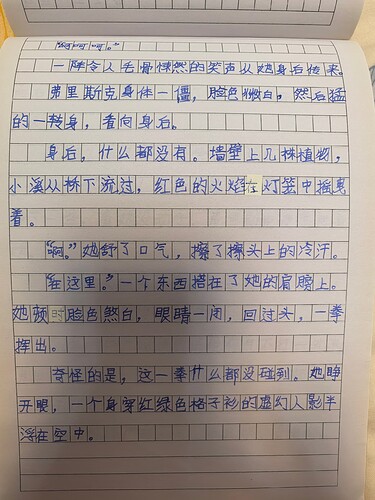 “呵呵呵。”
一阵令人毛骨悚然的笑声从她身后传来。
弗里斯克身体一僵，脸色惨白，然后猛
的一转身，看向身后。
身后，什么都没有。墙壁上几株植物，
小溪从桥下流过，红色的火焰在灯笼中摇曳
着。
“啊。”她舒了口气，擦了擦头上的冷汗。
“在这里。”一个东西搭在了她的肩膀上。
她顿时脸色煞白，眼睛一闭，回过头，一拳
挥出。
奇怪的是，这一拳什么都没碰到。她睁
开眼，一个身穿红绿色格子衫的虚幻人影半
浮在空中。